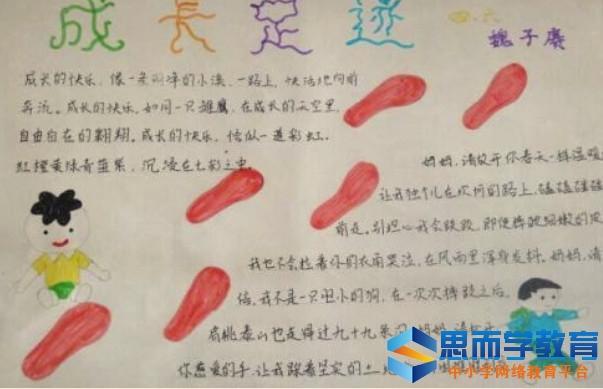 成长足迹
四.六
魏子赓
成长的快乐,像一条明净的小溪,一路上,快活地向前
奔流。成长的快乐,如同一只雄鹰,在成长的天空里,
自由自在的翱翔。成长的快乐,恰似一道彩虹,
红橙黄绿青蓝紫,沉浸在七彩之中。
妈妈,请放开你春天一样温暖
让我独个儿在坎坷的路上,磕磕磕磕
前走。别担心我会跌跤,即使摔疼稚嫩的
我也不会拉着你的衣角哭泣,在风雨里浑身发抖。妈妈,请
信,我不是一只胆小的狗,在一次次摔跤之后。
肩挑泰山也走得过九十九条
你慈爱的手,让我踩着坚实的土
思而学教育
中小学网络教育平台